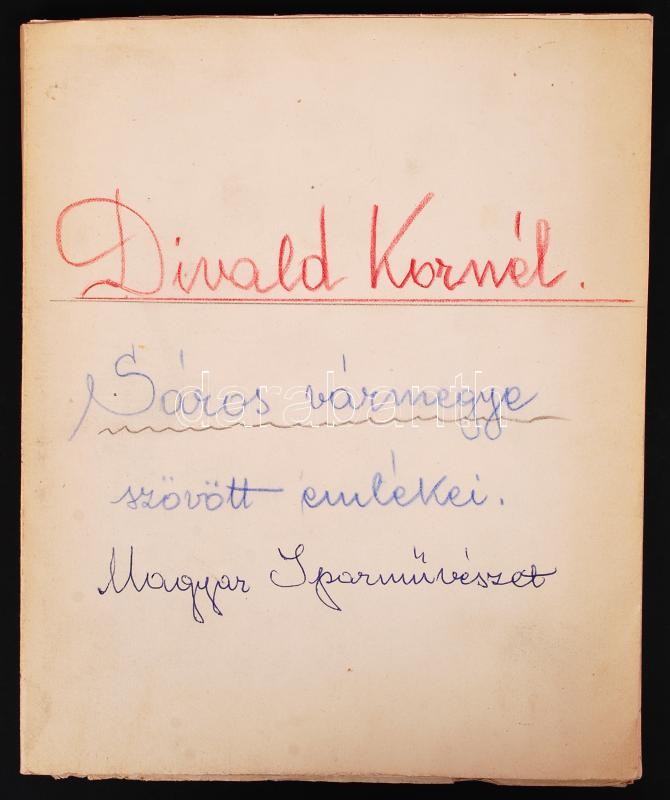 Divald Kornél.
Sáros vármegye
darabanth
szövött emlékei.
Magyar Iparművészet